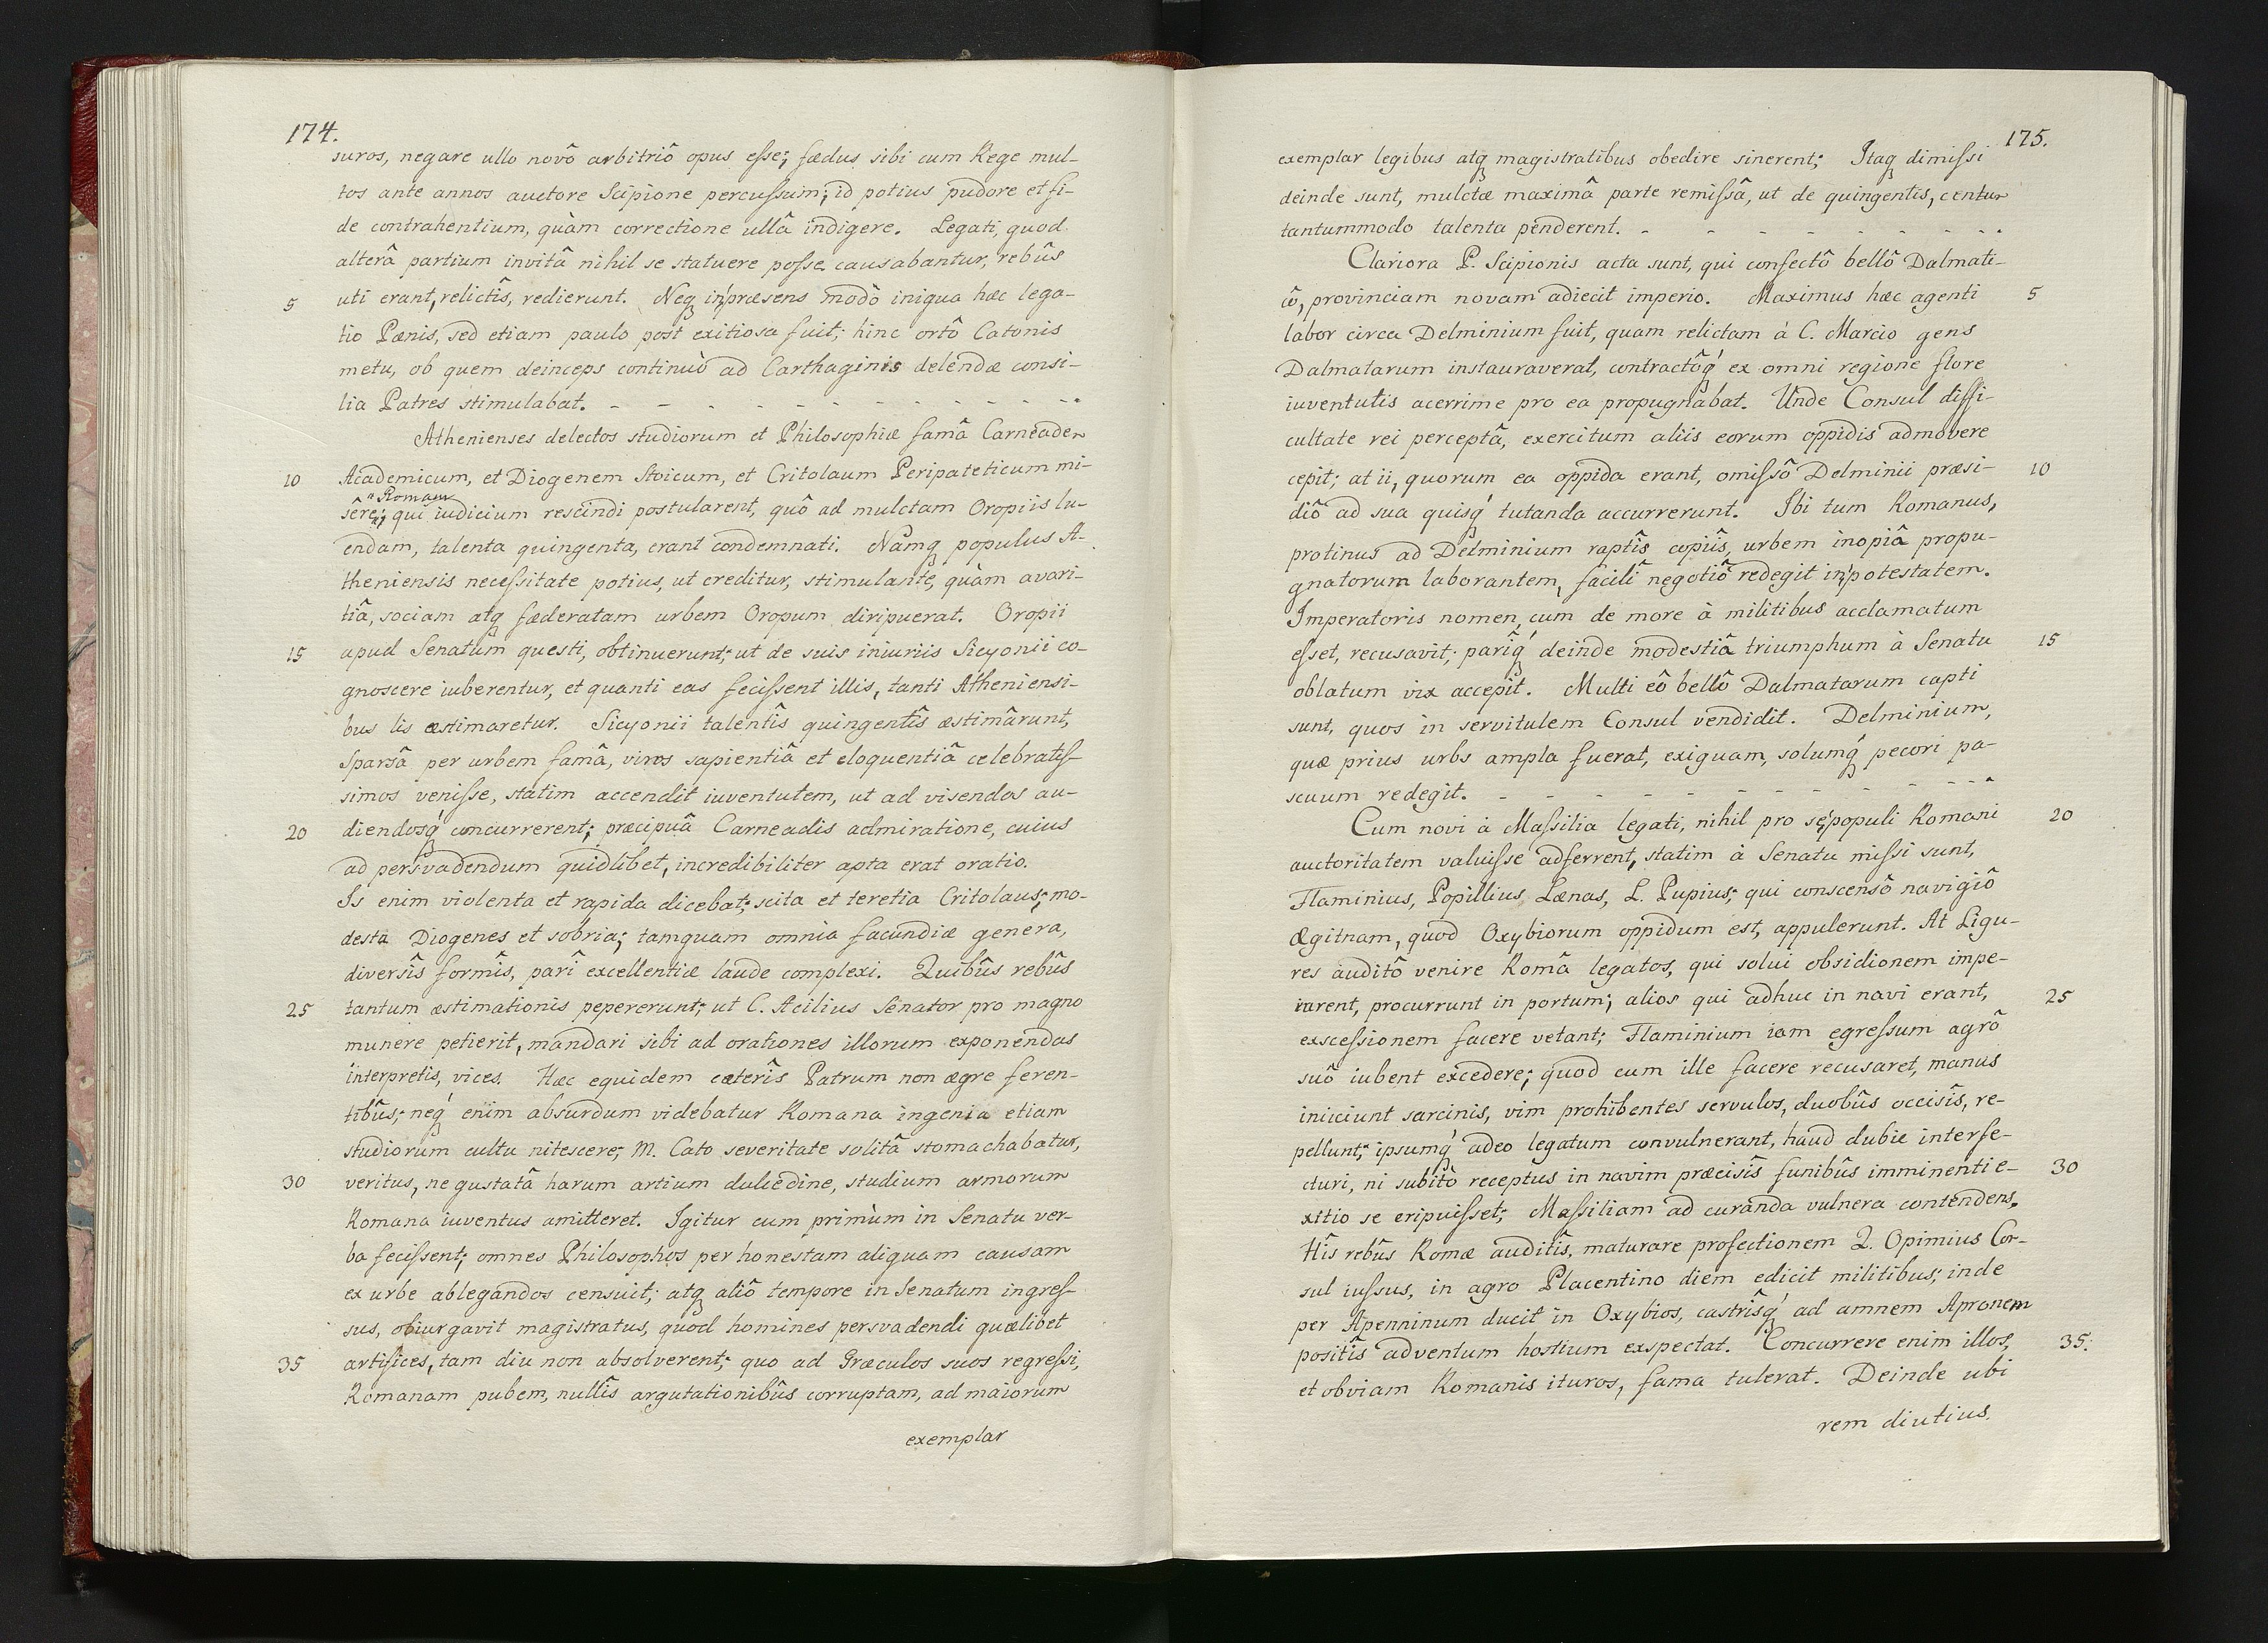 174.
suros, negare ullo novô arbitriô opus eſse; fœdus sibi cum Rege mul-
tos ante annos auctore Scipione percuſsum; id potius pudore et fi-
de contrahentium, quàm correctione ullâ indigere. Legati, quod
alterâ partium invitâ nihil se statuere poſse causabantur, rebûs
5 uti erant, relictîs, redierunt. Neq in præsens modò iniqua hæc lega-
tio Pœnis, sed etiam paulo pòst exitiosa fuit; hinc ortô Catonis
metu, ob quem deinceps continuò ad Carthaginis delendæ consi-
lia Patres stimulabat. - - - - - - - - - - - - -
Athenienses delectos studiorum et Philosophiæ famâ Carneadem
10 Academicum, et Diogenem Stoicum, et Critolaum Peripateticum mi-
Romam
sêre; qui iudicium rescindi postularent, quô ad mulctam Oropiis lu-
endam, talenta quingenta, erant condemnati. Namq populus A-
theniensis neceſsitate potius, ut creditur, stimulante, quàm avari-
tiâ, sociam atq fœderatam urbem Oropum diripuerat. Oropii
15 apud Senatum questi, obtinuerunt; ut de suis iniuriis Sicyonii co-
gnoscere iuberentur, et quanti eas feciſsent illis, tanti Atheniensi-
bus lis æstimaretur. Sicyonii talentîs quingentîs æstimârunt,
Sparsâ per urbem famâ, viros sapientiâ et eloquentiâ celebratiſ-
simos veniſse, statim accendit iuventutem, ut ad visendos au-
20 diendosq́ concurrerent; præcipuâ Carneadis admiratione, cuius
ad persvadendum quidlibet, incredibiliter apta erat oratio.
Is enim violenta et rapida dicebat; scita et teretia Critolaus; mo-
desta Diogenes et sobria; tamquam omnia facundiæ genera,
diversîs formîs, parî excellentiæ laude complexi. Quibûs rebûs
25 tantum æstimationis pepererunt; ut C. Acilius Senator pro magno
munere petierit, mandari sibi ad orationes illorum exponendas
interpretis, vices. Hæc equidem cæterîs Patrum non ægre feren-
tibûs; neq́ enim absurdum videbatur Romana ingenia etiam
studiorum cultu nitescere; M. Cato severitate solitâ stomachabatur,
30 veritus, ne gustatâ harum artium dulcedine, studium armorum
Romana iuventus amitteret. Igitur cum primùm in Senatu ver-
ba feciſsent; omnes Philosophos per honestam aliquam causam
ex urbe ablegandos censuit; atq aliô tempore in Senatum ingreſ-
sus, obiurgavit magistratus, quod homines persvadendi quælibet
35 artifices, tam diu non absolverent; quo ad Græculos suos regreſsi,
Romanam pubem, nullîs argutationibûs corruptam, ad maiorum
exemplar
175.
exemplar legibus atq magistratibus obedire sinerent; Itaq dimiſsi
deinde sunt, mulctæ maximâ parte remiſsâ, ut de quingentis, centum
tantummodo talenta penderent. - - - - - - - - -
Clariora P. Scipionis acta sunt, qui confectô bellô Dalmati-
cô, provinciam novam adiecit imperio. Maximus hæc agenti 5
labor circa Delminium fuit, quam relictam à C. Marcio gens
Dalmatarum instauraverat, contractôq́ ex omni regione flore
iuventutis acerrime pro ea propugnabat. Unde Consul diffi-
cultate rei perceptâ, exercitum aliis eorum oppidis admovere
cepit; at ii, quorum ea oppida erant, omiſsô Delminii præsi- 10
diô ad sua quisq́ tutanda accurrerunt. Ibi tum Romanus,
protinus ad Delminium raptîs copiîs, urbem inopiâ propu-
gnatorum laborantem, facilî negotiô redegit in potestatem.
Imperatoris nomen, cum de more à militibus acclamatum
eſset, recusavit; parîq́ deinde modestiâ triumphum à Senatu 15
oblatum vix accepit. Multi eô bellô Dalmatarum capti
sunt, quos in servitutem Consul vendidit. Delminium,
quæ prius urbs ampla fuerat, exiguam, solumq́ pecori pa-
scuum redegit. - - - - - - - - - - - -
Cum novi à Maſsilia legati, nihil pro se populi Romani 20
auctoritatem valuiſse adferrent, statim à Senatu miſsi sunt,
Flaminius, Popillius Lænas, L. Pupius; qui conscensô navigiô
Ægitnam, quod Oxybiorum oppidum est, appulerunt. At Ligu-
res auditô venire Româ legatos, qui solui obsidionem impe-
rarent, procurrunt in portum; alios qui adhuc in navi erant, 25
exsceſsionem facere vetant; Flaminium iam egreſsum agrô
suô iubent excedere; quod cum ille facere recusaret, manus
iniiciunt sarcinis, vim prohibentes servulos, duobûs occisîs, re-
pellunt; ipsumq́ adeo legatum convulnerant, haud dubie interfe-
cturi, ni subitò receptus in navim præcisîs funibûs imminenti e- 30
xitio se eripuiſset; Maſsiliam ad curanda vulnera contendens.
Hîs rebûs Romæ auditîs, maturare profectionem Q. Opimius Con-
sul iuſsus, in agro Placentino diem edicit militibus; inde
per Apenninum ducit in Oxybios, castrîsq́ ad amnem Apronem
positîs adventum hostium exspectat. Concurrere enim illos, 35.
et obviam Romanis ituros, fama tulerat. Deinde ubi
rem diutius.